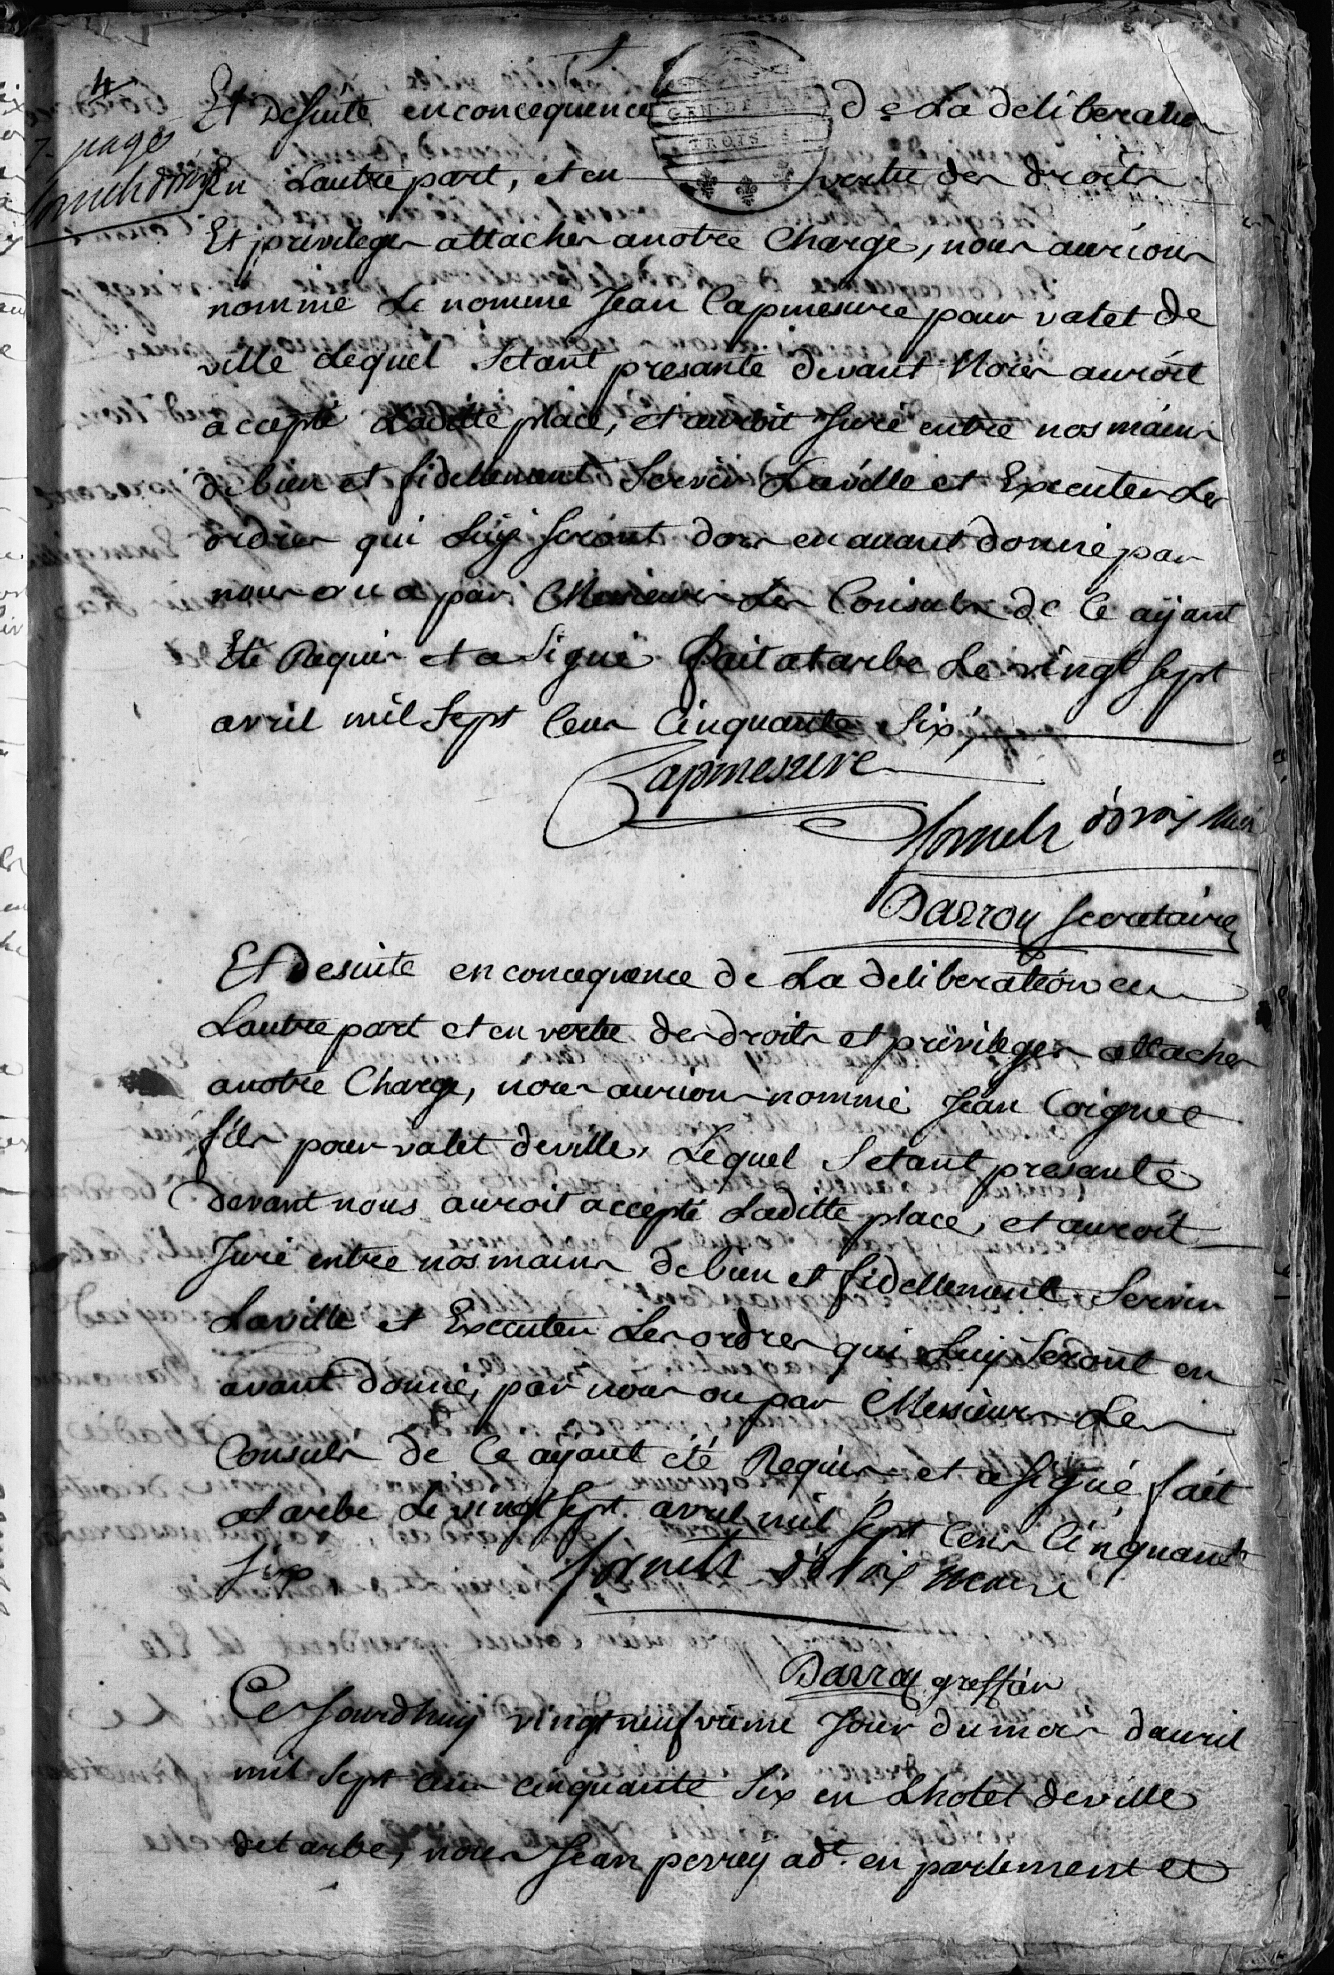 4
7. pages
GEN. DE
TROIS S.
Et desuite en concequence de La deliberation
En Lautre part, et en vertu des droits
Et privileges attaches anotre Charge, nous aurions
nommé Le nommé Jean Capmesure pour valet de
ville Lequel Setant presanté devant Nous auroit
accepté Laditte place, et auroit Juré entre nos mains
de bien et fidellement Servir Laville et Executer Les
ordres qui Luy seront dors en avant donné par
nous ou a par Messieurs Les Consuls de Ce ayant
Eté Requis et a Signé fait atarbe Le vingt sept
avril mil Sept Cens Cinquante Six,
Capmesure
Darroy secretaire
Et desuite en concequence de La deliberation en
Lautre part et en vertu des droits et privileges attaches
anotre Charge, nous aurions nommé Jean Coignet
fils pour valet deville, Lequel Setant presanté
devant nous auroit accepté Laditte place, et auroit
Juré entre nos mains de bien et fidellement Servir
Laville et Executer Les ordres qui Luy Seront en
avant donné, par nous ou par Messieurs Les
Consuls de Ce ayant été Requis et a signé, fait
atarbe Le vingt sept avril mil sept Cens Cinquante
six
Darroy greffier
Ce Jourdhuy vingt neufvieme Jour du mois davril
mil sept cens cinquante six en Lhotel deville
detarbe, nous Jean perrey adt. en parlement et